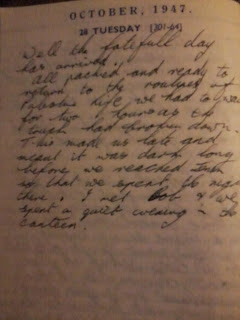 OCTOBER, 1947.
28 TUESDAY (301-64)
Well the fatefull day
has arrived.
All packed and ready to
return to the routine of
life we had to wait
for two hours as the
coach had broken down.
This made us late and
meant it was dark long
before we reached
so that we spent the night
there. I met Bob & we
spent a quiet evening in the
canteen.